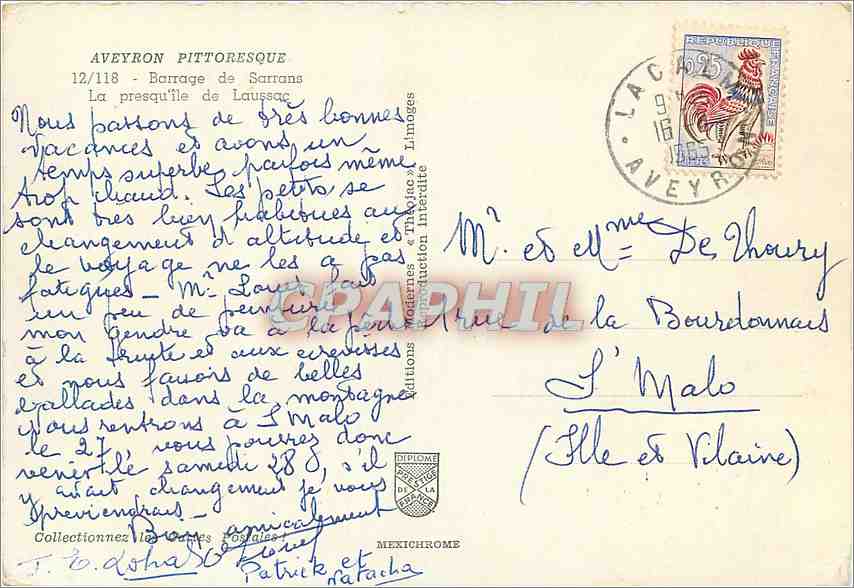 AVEYRON PITTORESQUE
12/118 - Barrage de Sarrans
La presqu'île de Laussac
Nous passons de très bonnes
vacances et avons un
temps superbe parfois même
trop chaud. Les petits se
sont très bien habitués au
changement d'altitude et
le voyage ne les a pas
fatigués - Mr Louis fait
un peu de peinture
mon gendre va à la pêche
à la truite et aux écrevisses
et nous faisons de belles
ballades dans la montagne
Nous rentrons à St Malo
le 27, vous pourrez donc
venir le samedi 28, s'il
y avait changement je vous
préviendrais
Bien amicalement
Patrick et
Natacha
Collectionnez les Cartes Postales !
Editions Modernes « Théojac » Limoges
Reproduction interdite
CPAPHIL
DIPLOME
PRESTIGE
DE LA
FRANCE
MEXICHROME
REPUBLIQUE FRANÇAISE
0,25
LACALM
16
1965
AVEYRON
Mr. et Mme De Thoury
rue de la Bourdonnais
St Malo
(Ille et Vilaine)